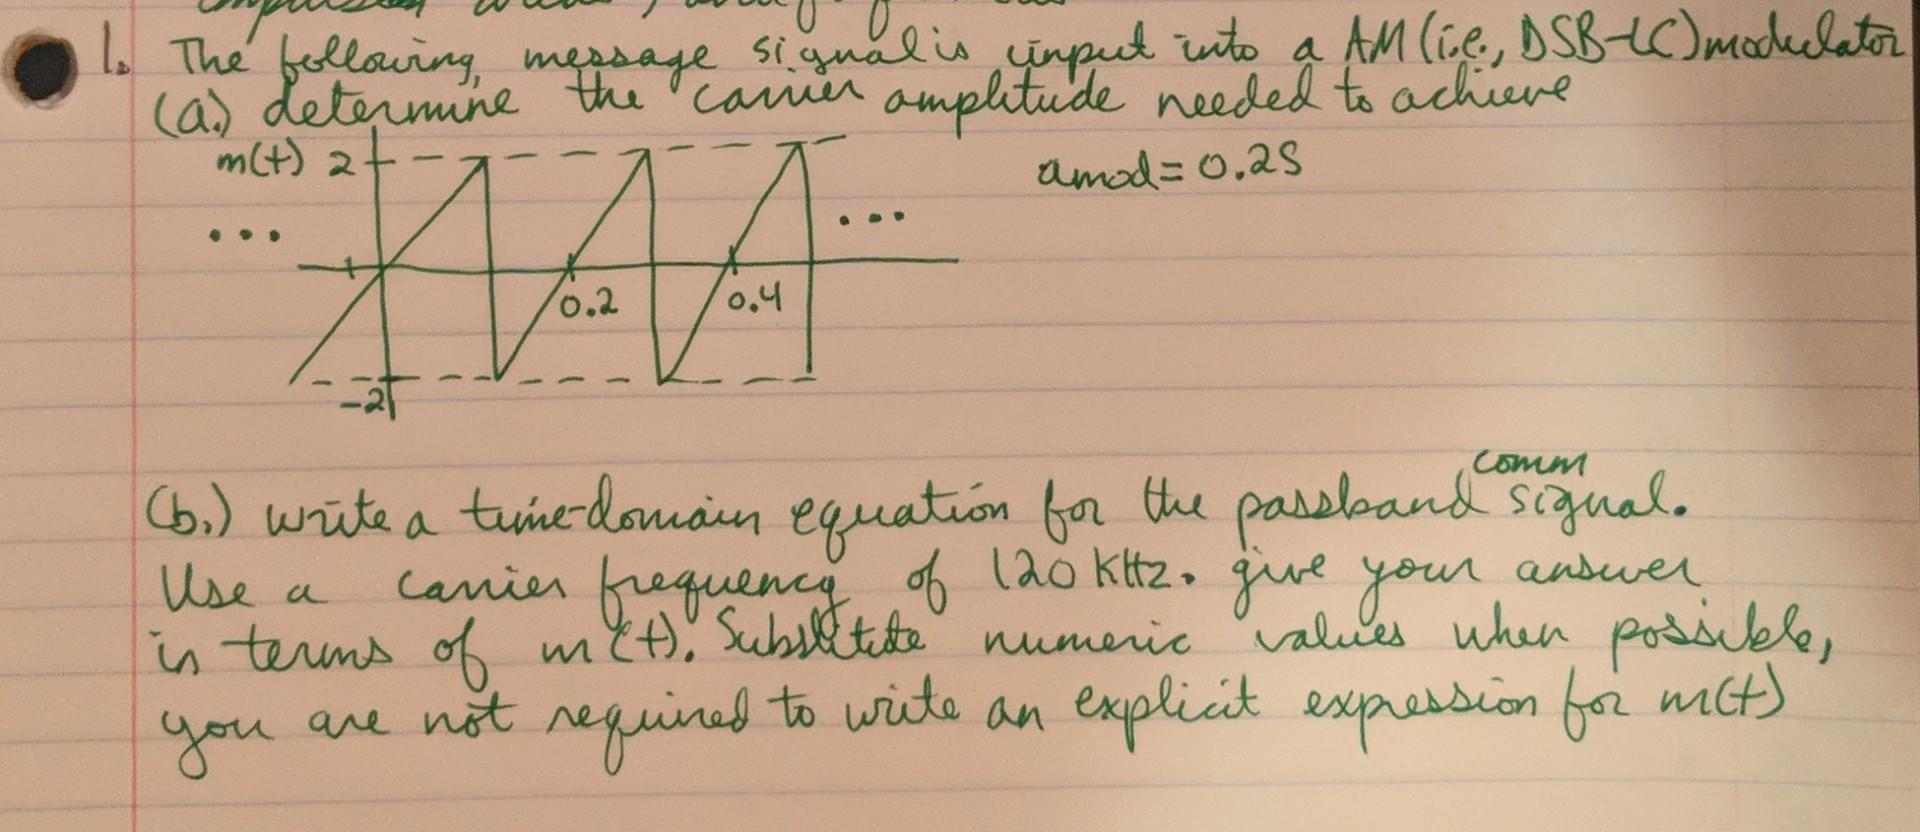 1. The following message signal is input into a AM (i.e., DSB-LC) modulator
(a.) determine the carrier amplitude needed to achieve
m(t) 2
amod = 0.25
0.2
0.4
-2
comm
(b.) write a time-domain equation for the passband signal.
Use a carrier frequency of 120 KHz. give your answer
in terms of m(t). Substitute numeric values when possible,
you are not required to write an explicit expression for m(t)